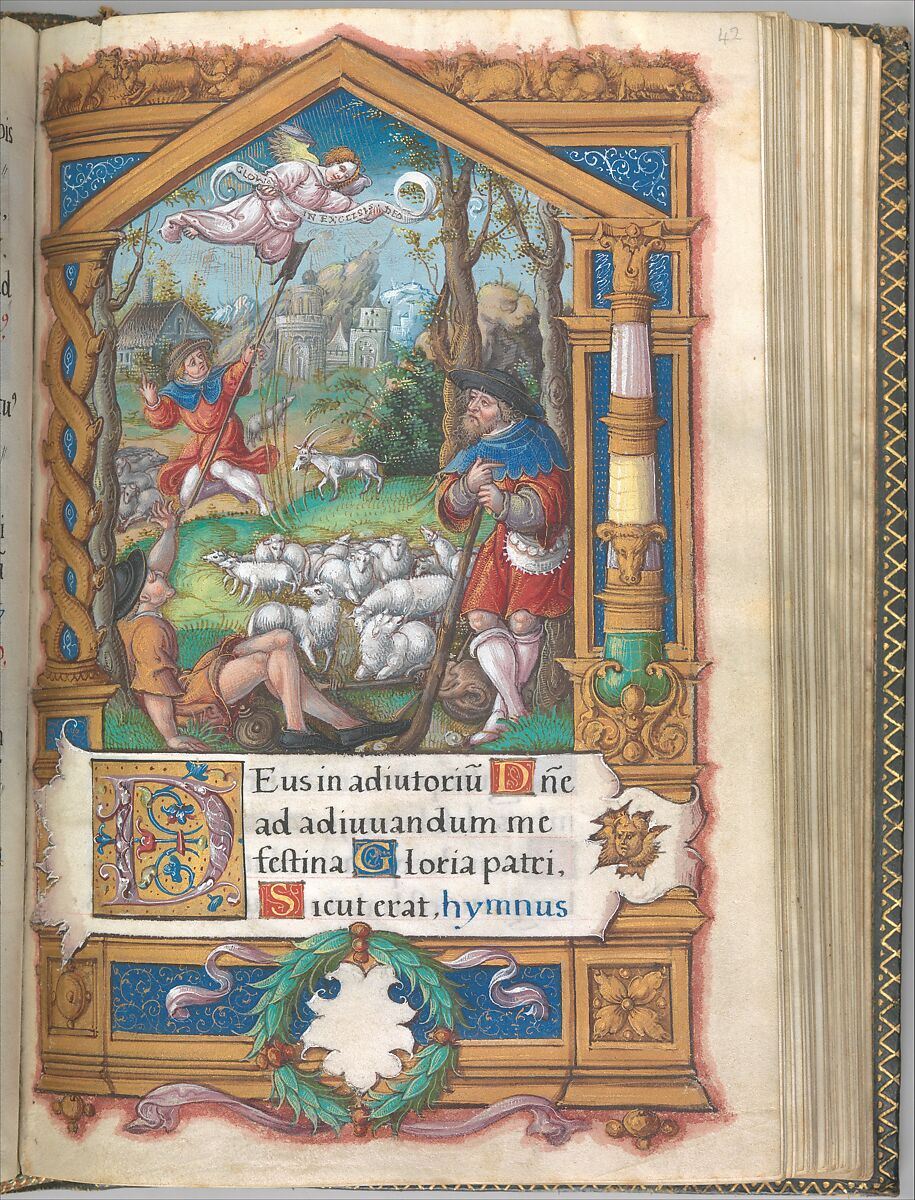 42
GLORIA
IN EXCELSIS DEO
DEus in adiutoriũ Dñe
ad adiuuandum me
festina Gloria patri,
Sicut erat, hymnus